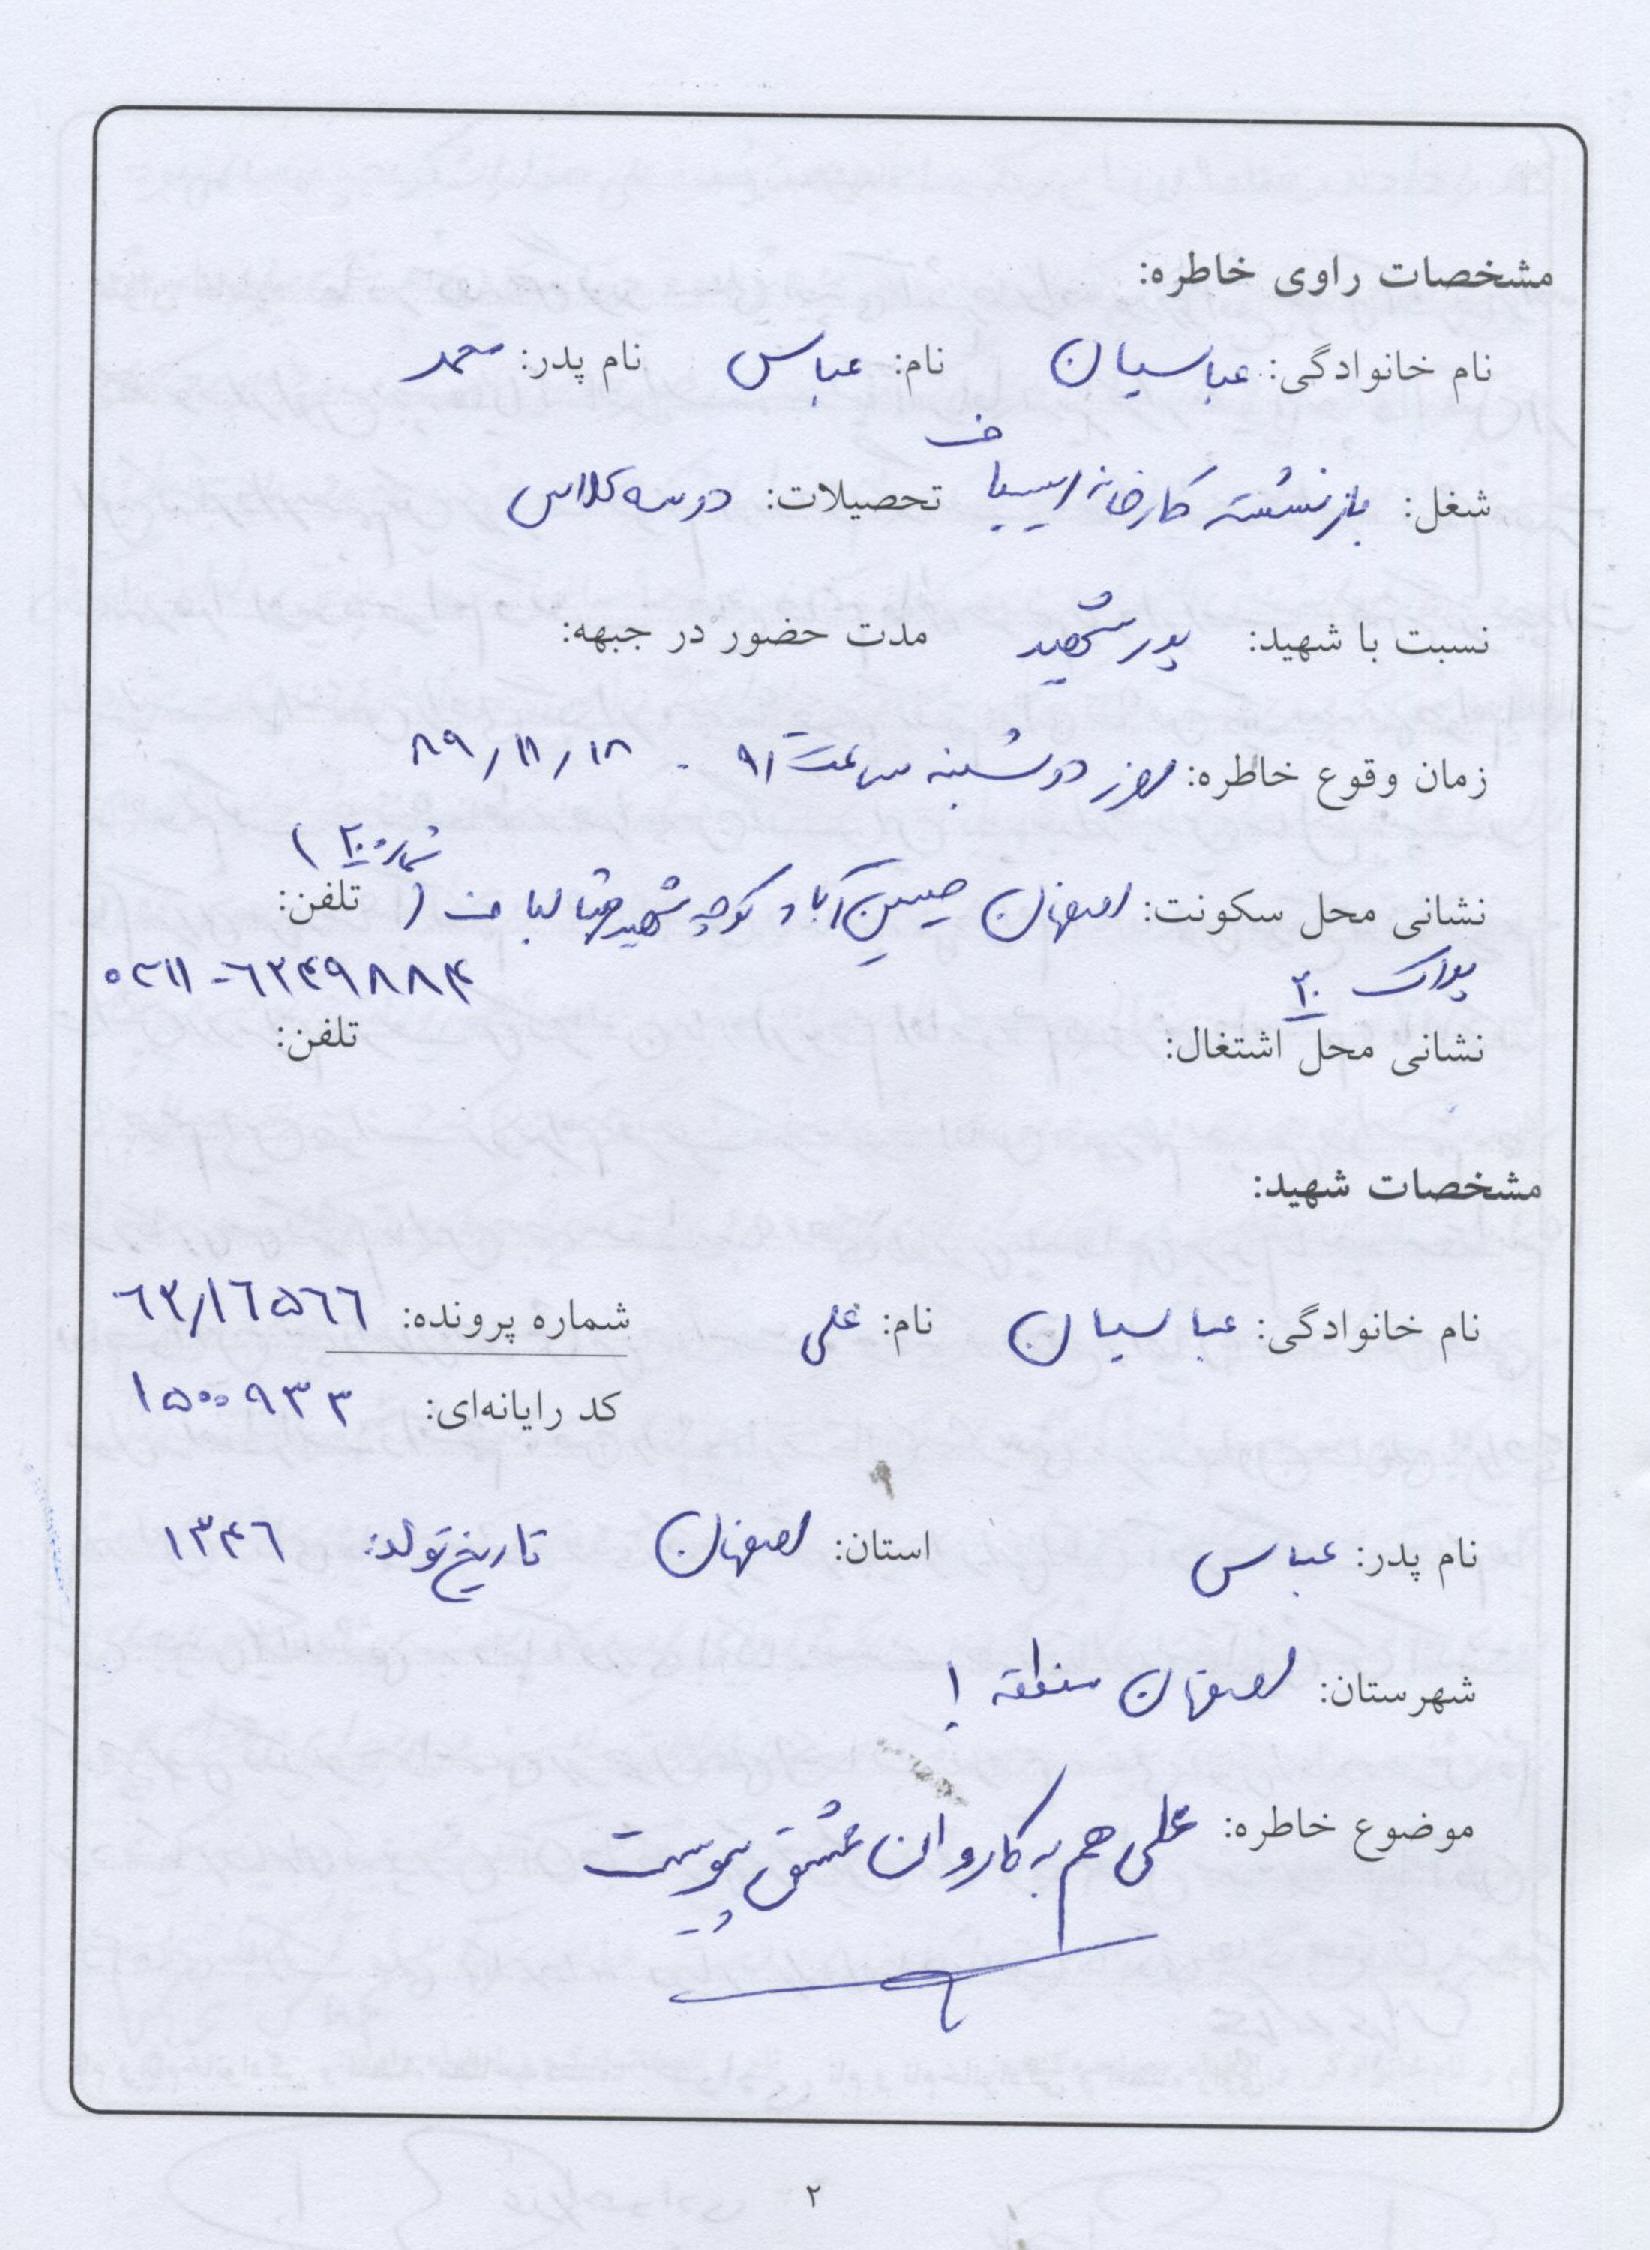 مشخصات راوی خاطره:
نام خانوادگی: عباسیان نام: عباس نام پدر: محمد
شغل: بازنشسته کارخانه ریسباف تحصیلات: دو سه کلاس
نسبت با شهید: پدر شهید مدت حضور در جبهه:
زمان وقوع خاطره: روز دوشنبه ساعت ۹ ۸۹/۱۱/۱۸
نشانی محل سکونت: اصفهان حسین آباد کوچه شهید (شماره ۲۰) تلفن:
پلاک ۲۰ ۰۳۱۱-۶۲۴۹۸۸۴
نشانی محل اشتغال: تلفن:
مشخصات شهید:
نام خانوادگی: عباسیان نام: علی شماره پرونده: ۶۳/۱۶۵۶۶
کد رایانه‌ای: ۱۵۰۰۹۳۳
نام پدر: عباس استان: اصفهان تاریخ تولد: ۱۳۴۶
شهرستان: اصفهان منطقه ۱
موضوع خاطره: علی هم به کاروان عشق پیوست
۲